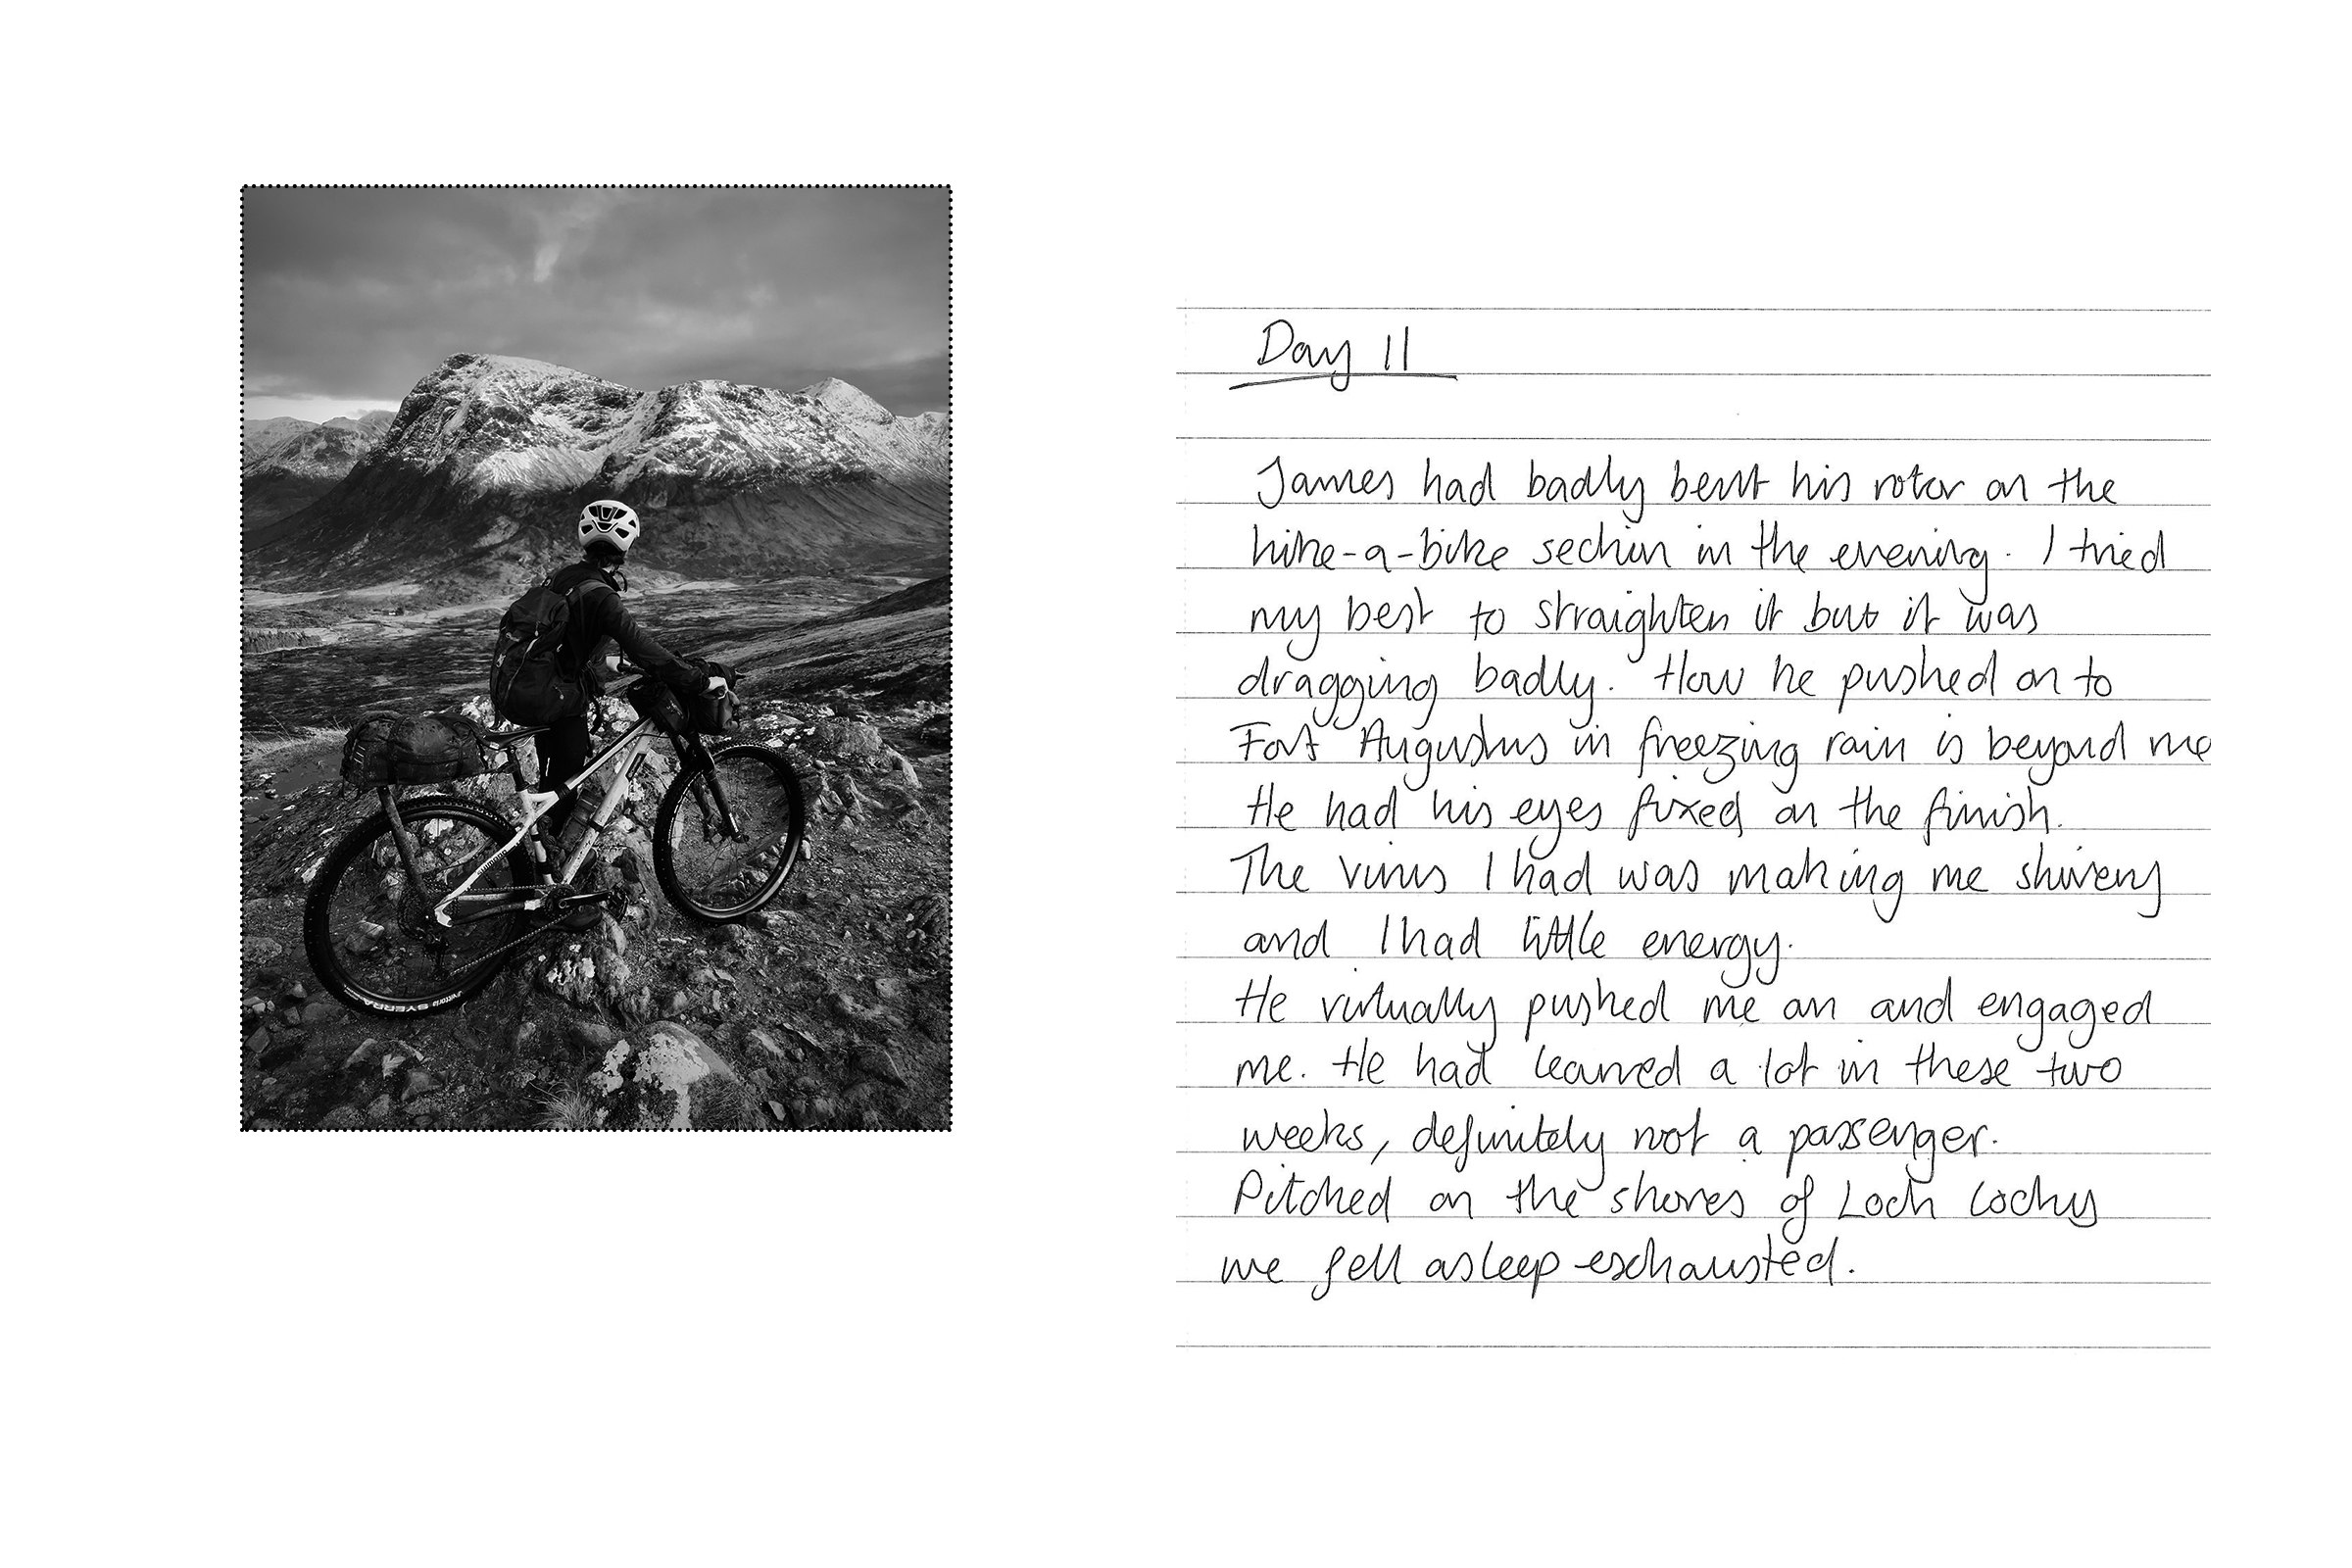 Day 11
James had badly bent his rotor on the
hike-a-bike section in the evening. I tried
my best to straighten it but it was
dragging badly. How he pushed on to
Fort Augustus in freezing rain is beyond me
He had his eyes fixed on the finish.
The virus I had was making me shivery
and I had little energy.
He virtually pushed me on and engaged
me. He had learned a lot in these two
weeks, definitely not a passenger.
Pitched on the shores of Loch Lochy
we fell asleep exhausted.
vittoria SYERRA